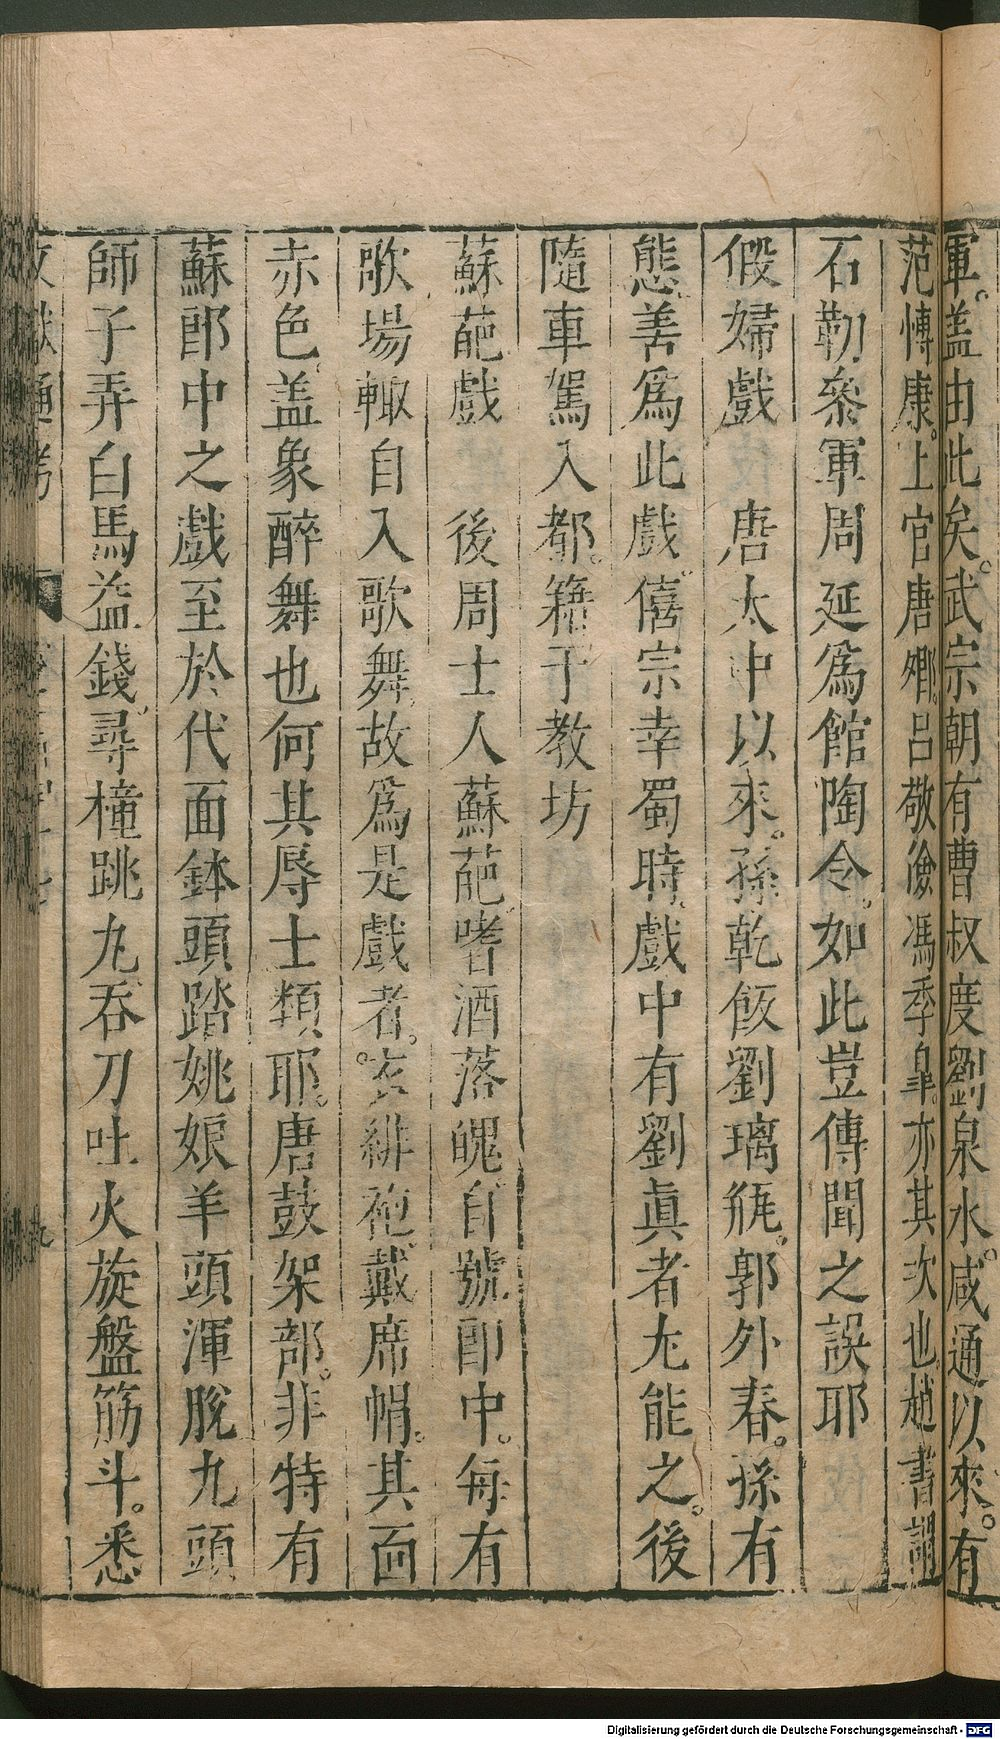 軍。盖由此矣。武宗朝有曹叔度劉泉水。咸通以來。有
范愽康。上官唐卿。呂敬儉馮季臯。亦其次也。趙書謂
石勒叅軍周延爲館陶令。如此豈傳聞之誤耶
假婦戲 唐太中以來。孫乾飯劉璃瓶。郭外春。孫有
態。善爲此戲。僖宗幸蜀時。戲中有劉眞者尢能之。後
隨車駕入都。籍于教坊
蘇葩戲 後周士人蘇葩。嗜酒落魄。自號郎中。每有
歌場輙自入歌舞。故爲是戲者。衣緋袍。戴席帽。其面
赤色。盖象醉舞也何其辱士類耶。唐鼓架部。非特有
蘇郎中之戲至於代面鉢頭踏姚娘羊頭渾脫九頭
師子弄白馬益錢。尋橦跳九。吞刀吐火旋盤筋斗。悉
文獻通考 九
Digitalisierung gefördert durch die Deutsche Forschungsgemeinschaft - DFG